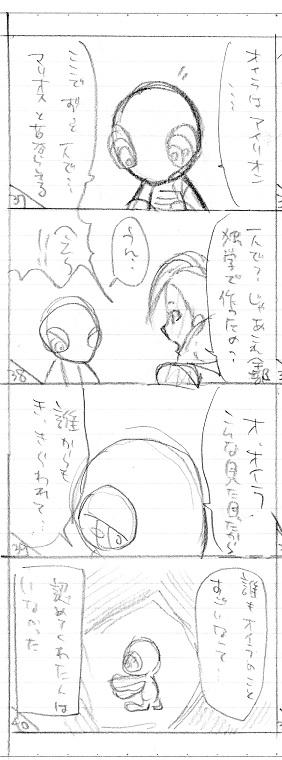 オイラはアイリオン
・・・・
ここでずっと一人で・・
マリオネとあそんでる
37
一人で?じゃあこれ全部
独学で作ったの?
うん・・
へえ〜
38
オ、オイラ
こんな見た目だから
誰からも
き、きらわれて・・
39
誰もオイラのこと
すごいなって・・
認めてくれたんは
いなかった
40